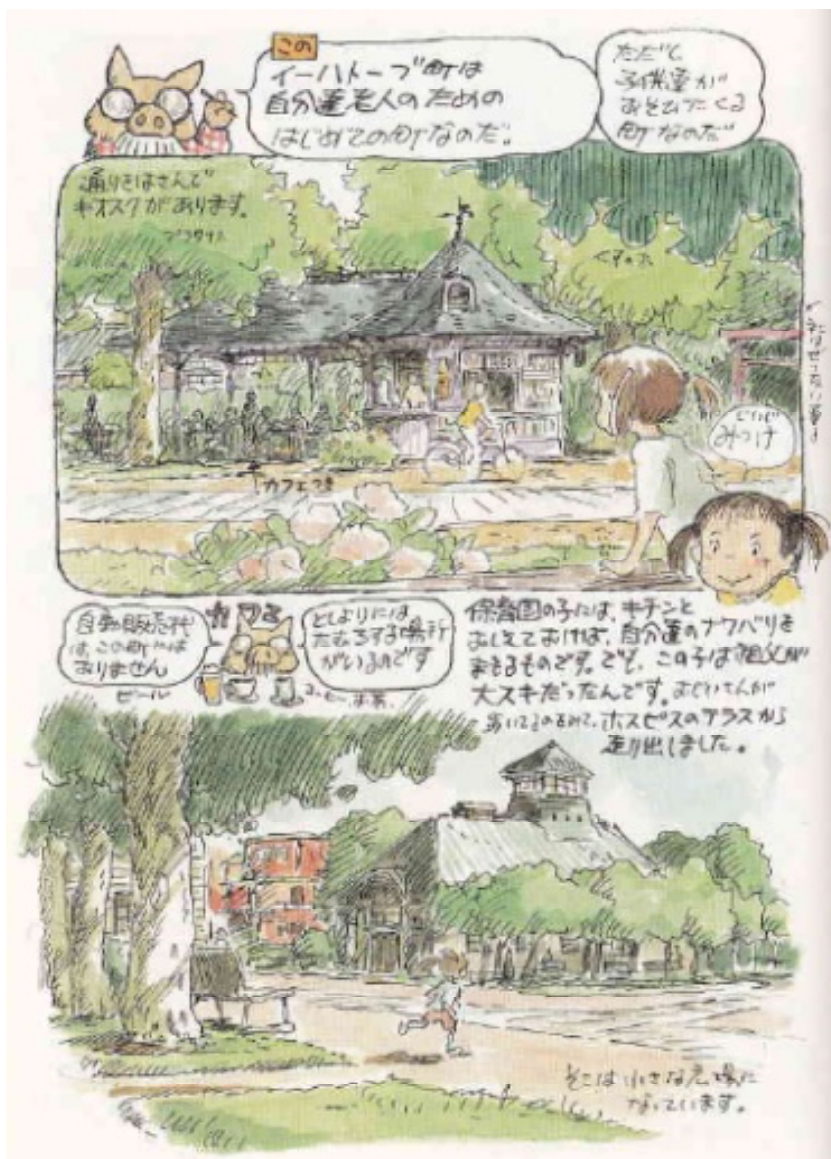 この
イーハトーブ町は
自分達老人のための
はじめての町なのだ。
子供達が
あそびにくる
町なのだ
通りをはさんで
キオスクがあります。
みつけ
カフェつき
自動販売機
は、この町には
ありません
ビール
としよりには
たむろする場所
がいるのです
保育園の子には、キチンと
おしえておけば、自分達のナワバリを
まもるものです。でも、この子は祖父が
大スキだったんです。おじいさんが
歩いてるのをみて、ホスピスのテラスから
走り出しました。
そこは小さな広場に
なっています。